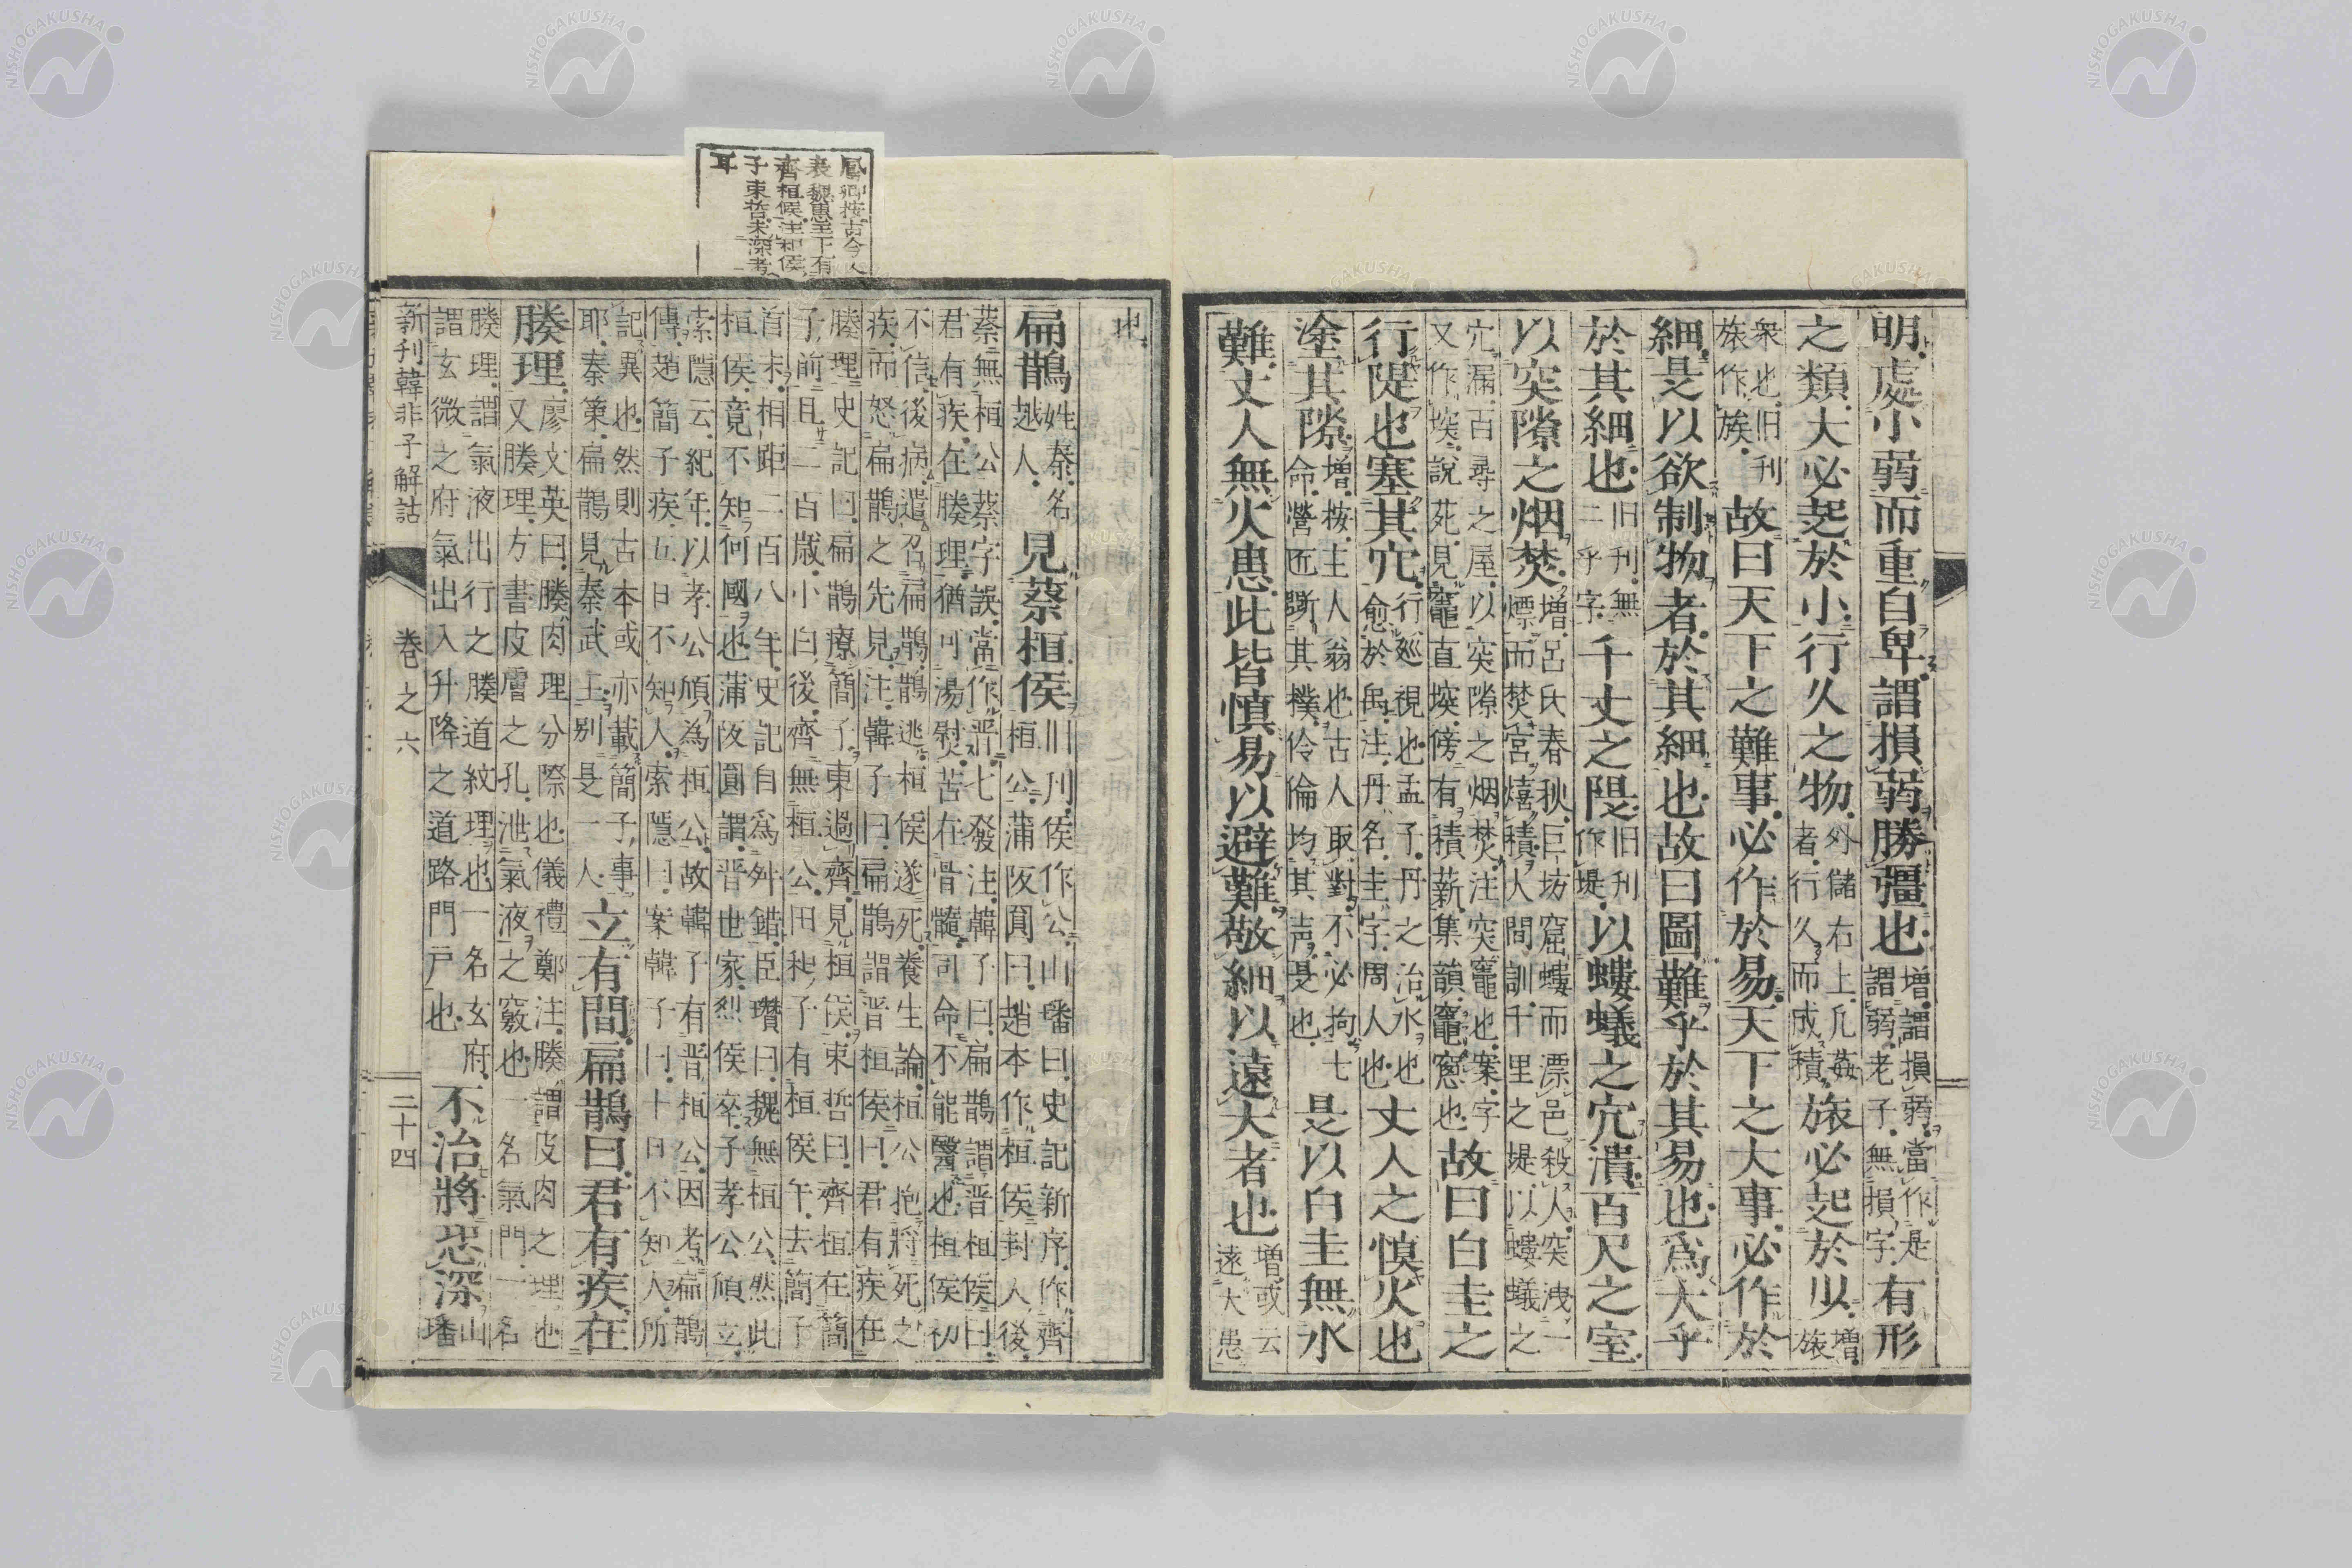 明處小弱而重自卑謂損弱勝彊也
增謂損弱當作是
謂弱老子無損字
有形
之類大必起於小行久之物
外儲右上凡姦
者行久而成積
旅必起於以
增
旅
衆也旧刊
旅作族
故曰天下之難事必作於易天下之大事必作於
細是以欲制物者於其細也故曰圖難乎於其易也為大乎
於其細也
旧刊無
二乎字
千丈之隄
旧刊
作堤
以螻蟻之穴潰百尺之室
以突隙之烟焚
增呂氏春秋巨坊窟螻而漂邑殺人突洩一
煙而焚宮熺積人間訓千里之堤以螻蟻之
穴漏百尋之屋以突隙之烟焚注突竈也案字
又作堗說苑見竈直堗傍有積薪集韻竈窻也
故曰白圭之
行隄也塞其穴
行廵視也孟子丹之治水也
愈於禹注丹名圭字周人也
丈人之慎火也
塗其隙
增按主人翁也古人取對不必拘七
命營匠斲其樸伶倫均其声是也
是以白圭無水
難丈人無火患此皆慎易以避難敬細以遠大者也
增或云
遠大患
鳳卿按古今人
表魏惠王下有
齊桓侯注和侯
子東哲未深考
耳
也
扁鵲
姓秦名
越人
見蔡桓侯
旧刊侯作公山璠曰史記新序作齊
桓公蒲阪圓曰趙本作桓侯封人後
蔡無桓公蔡字誤當作晋七發注韓子曰扁鵲謂晋桓侯曰
君有疾在腠理猶可湯熨苦在骨髓司命不能醫也桓侯初
不信後病遣召扁鵲鵲逃桓侯遂死養生論桓公抱將死之
疾而怒扁鵲之先見注韓子曰扁鵲謂晋桓侯曰君有疾在
腠理史記曰扁鵲療簡子東過齊見桓侯束哲曰齊桓在簡
子前且二百歲小白後齊無桓公田和子有桓侯午去簡子
首末相距二百八年史記自為舛錯臣瓚曰魏無桓公然此
桓侯竟不知何國也蒲阪圓謂晋世家烈侯卒子孝公頎立
索隱云紀年以孝公頎為桓公故韓子有晋桓公因考扁鵲
傳趙簡子疾五日不知人索隱曰案韓子曰十日不知人所
記異也然則古本或亦載簡子事
耶秦策扁鵲見秦武王別是一人
立有間扁鵲曰君有疾在
腠理
廖文英曰腠肉理分際也儀禮鄭注腠謂皮肉之理也
又腠理方書皮膚之孔泄氣液之竅也一名氣門一名
腠理謂氣液出行之腠道紋理也一名玄府
謂玄微之府氣出入升降之道路門戸也
不治將恐深
山
璠
新刊韓非子解詁
卷之六
二十四
NISHOGAKUSHA